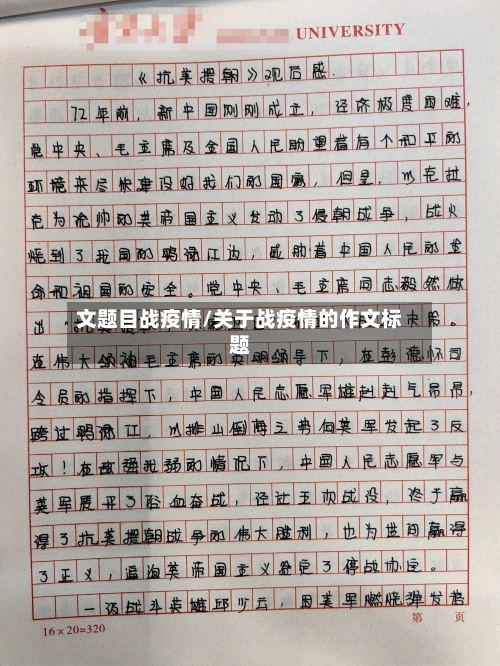 UNIVERSITY
《抗美援朝》观后感
72年前，新中国刚刚成立，经济极度困难，
党中央、毛主席及全国人民盼望着有个和平的
环境来尽快建设好我们的国家，但是，以克拉
克为统帅的美帝国主义发动了侵朝战争，战火
烧到了我国的鸭渌江边，威胁着中国人民的生
命和祖国的安全。党中央、毛主席同志毅然做
出
文题目战疫情/关于战疫情的作文标
题
在伟大领袖毛主席的英明领导下，在彭德怀司
令员的指挥下，中国人民志愿军雄赳赳气昂昂，
跨过鸭渌江，以排山倒海之势向美军发起了反
攻！在敌强我弱的情况下，中国人民志愿军与
美军展开了浴血奋战，经过五次战役，终于赢
得了抗美援朝战争的伟大胜利，也为世间赢得
了正义，逼迫美帝国主义签定了停战协定。
一级战斗英雄邱少云，因美军燃烧弹发着
16×20=320
第 页